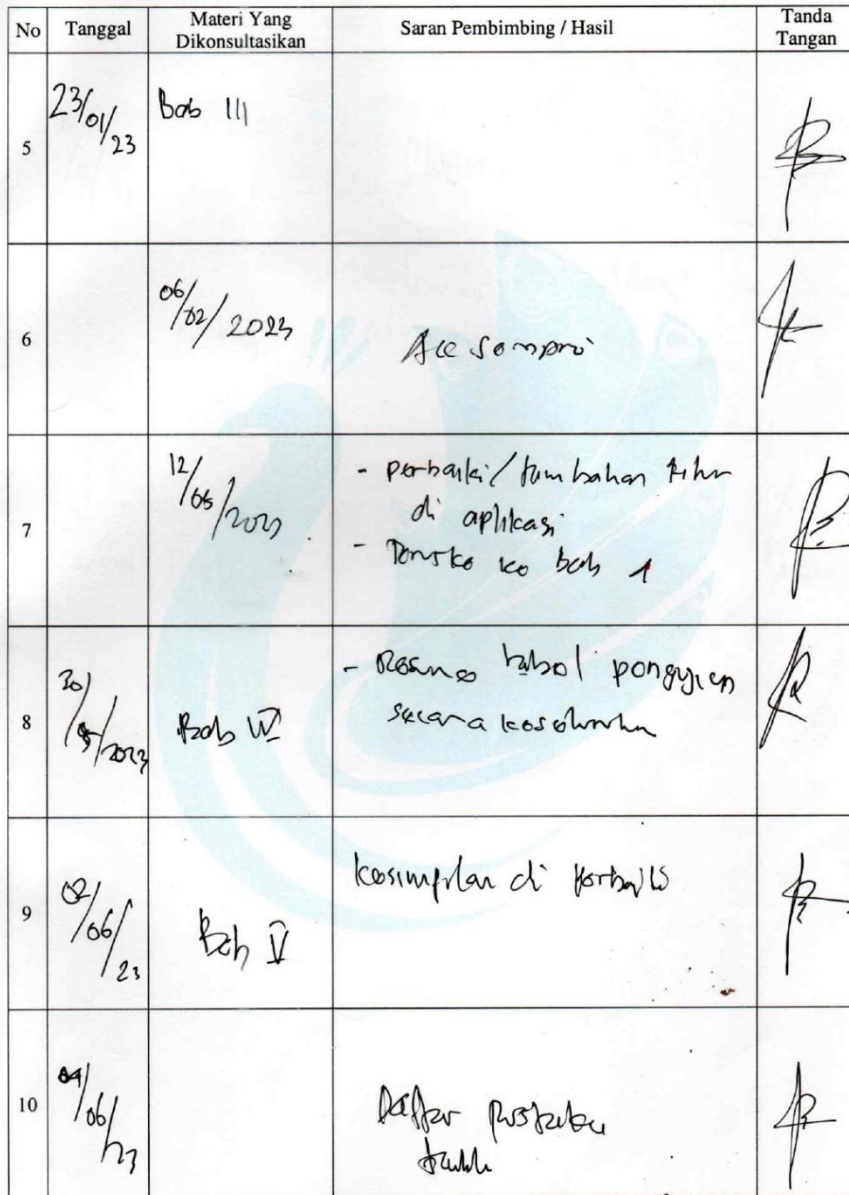 No Tanggal Materi Yang Dikonsultasikan Saran Pembimbing / Hasil Tanda Tangan
5 23/01/23 Bab III
6 06/02/2023 Acc sempro
7 12/05/2023 - perbaiki/tambahan fitur
di aplikasi
- ke bab 1
8 30/05/2023 Bab IV - Resume tabel pengujian
secara keseluruhan
9 02/06/23 Bab V kesimpulan di perbaiki
10 04/06/23 Daftar pustaka